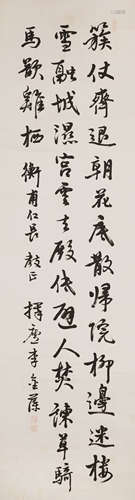 簇仗齊退朝花底散帰院柳邊迷樓
雪融城濕宮雲去殿低避人焚諫草騎
馬欲雞栖 衡甫仁長教正 擇廬李金藻